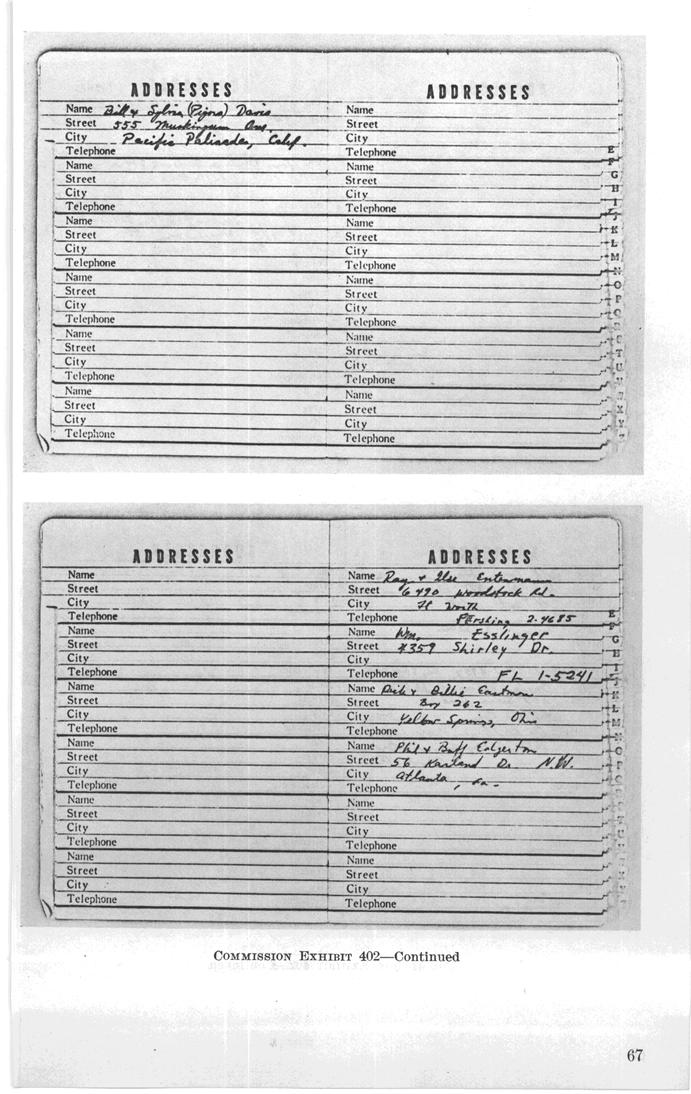 ADDRESSES
Name Bill & Sylvia (Pijora) Davis
Street 555 Muskingum Ave
City Pacific Palisades, Calif.
Telephone
Name
Street
City
Telephone
Name
Street
City
Telephone
Name
Street
City
Telephone
Name
Street
City
Telephone
Name
Street
City
Telephone
ADDRESSES
Name
Street
City
Telephone
Name
Street
City
Telephone
Name
Street
City
Telephone
Name
Street
City
Telephone
Name
Street
City
Telephone
Name
Street
City
Telephone
E
F
G
H
I
J
K
L
M
N
O
P
ADDRESSES
Name
Street
City
Telephone
Name
Street
City
Telephone
Name
Street
City
Telephone
Name
Street
City
Telephone
Name
Street
City
Telephone
Name
Street
City
Telephone
ADDRESSES
Name Ray & Ilse Entenmann
Street 6490 Woodstock Rd.
City Ft Worth
Telephone PErshing 2-4685
Name Wm. Esslinger
Street 4359 Shirley Dr.
City
Telephone FL 1-5241
Name Dick & Billie Eastman
Street Box 262
City Yellow Springs, Ohio
Telephone
Name Phil & Buff Edgerton
Street 56 Karland Dr. N.W.
City Atlanta, Ga.
Telephone
Name
Street
City
Telephone
Name
Street
City
Telephone
COMMISSION EXHIBIT 402—Continued
67